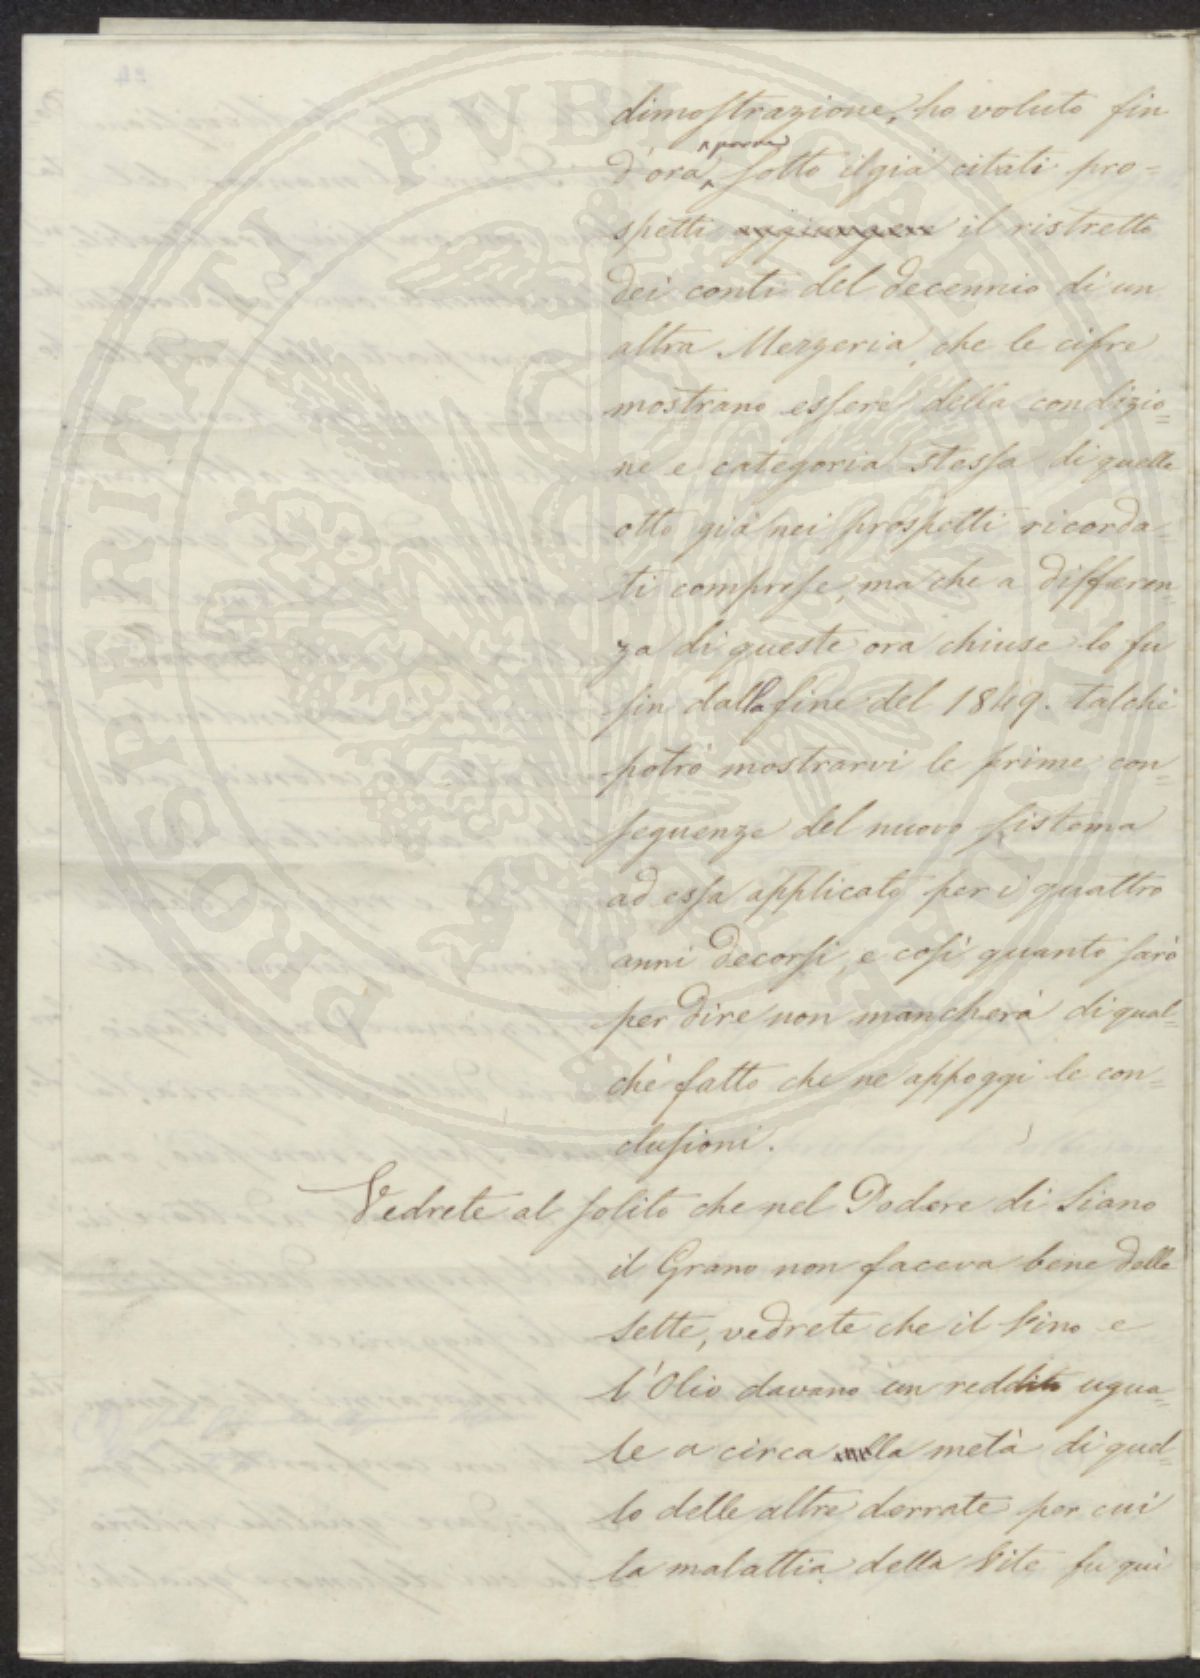 dimostrazione, ho voluto fin
d'ora porre sotto il già citati pro=
spetti aggiungere il ristretto
dei conti del decennio di un
altra Mezzeria, che le cifre
mostrano essere della condizio=
ne e categoria stessa di quelle
otto già nei prospetti ricorda=
ti comprese, ma che a differen=
za di queste ora chiuse lo fu
fin dalla fine del 1849. talchè
potrò mostrarvi le prime con=
seguenze del nuovo sistema
ad essa applicato per i quattro
anni decorsi, e così quanto sarò
per dire non mancherà di qual=
chè fatto che ne appoggi le con=
clusioni.
Vedrete al solito che nel Podere di Liano
il Grano non faceva bene delle
Sette, vedrete che il Vino e
l'Olio davano un reddito ugua=
le a circa la metà di quel=
lo delle altre derrate per cui
la malattia della Vite fu quì
PROSPERITATI PUBLICAE AUGENDAE